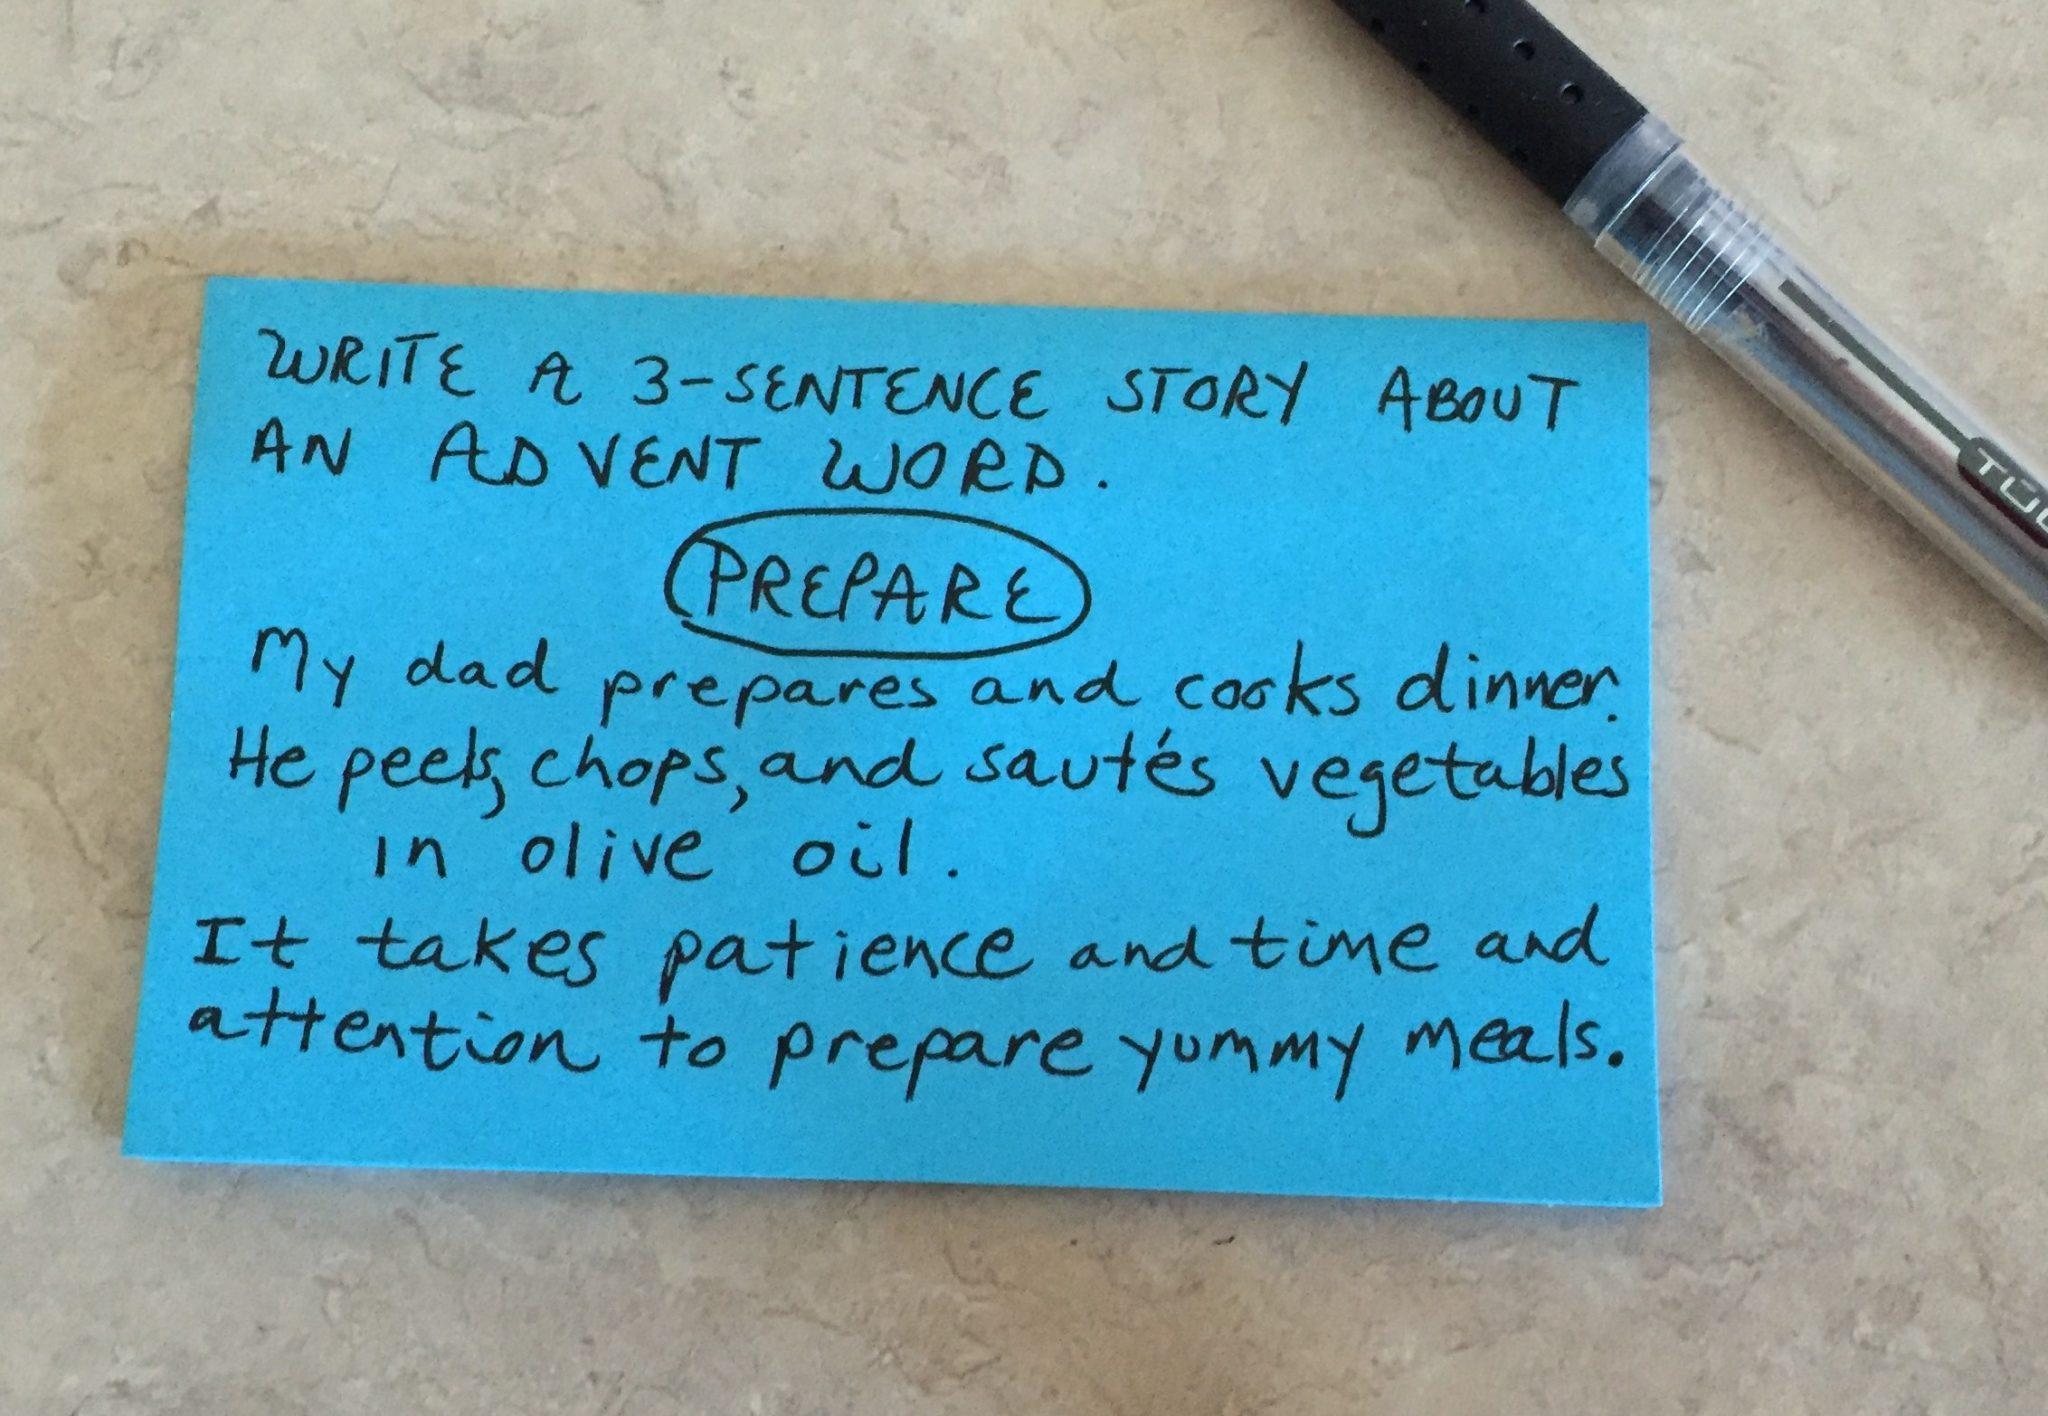 WRITE A 3-SENTENCE STORY ABOUT
AN ADVENT WORD.
PREPARE
My dad prepares and cooks dinner.
He peels, chops, and sautés vegetables
in olive oil.
It takes patience and time and
attention to prepare yummy meals.